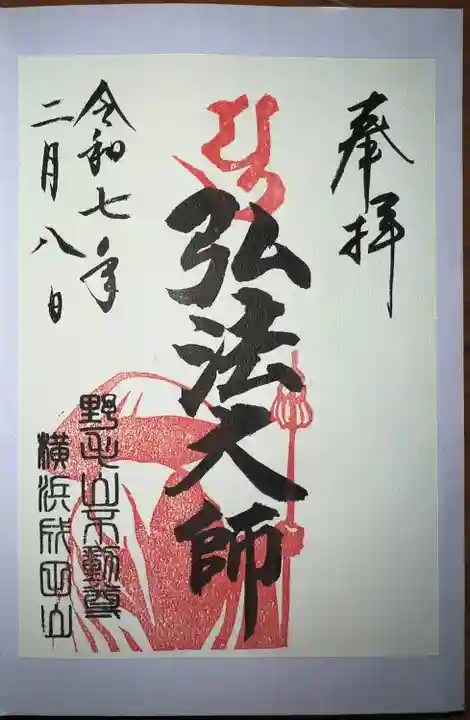 奉拝
弘法大師
令和七年
二月八日
野毛山不動尊
横浜成田山